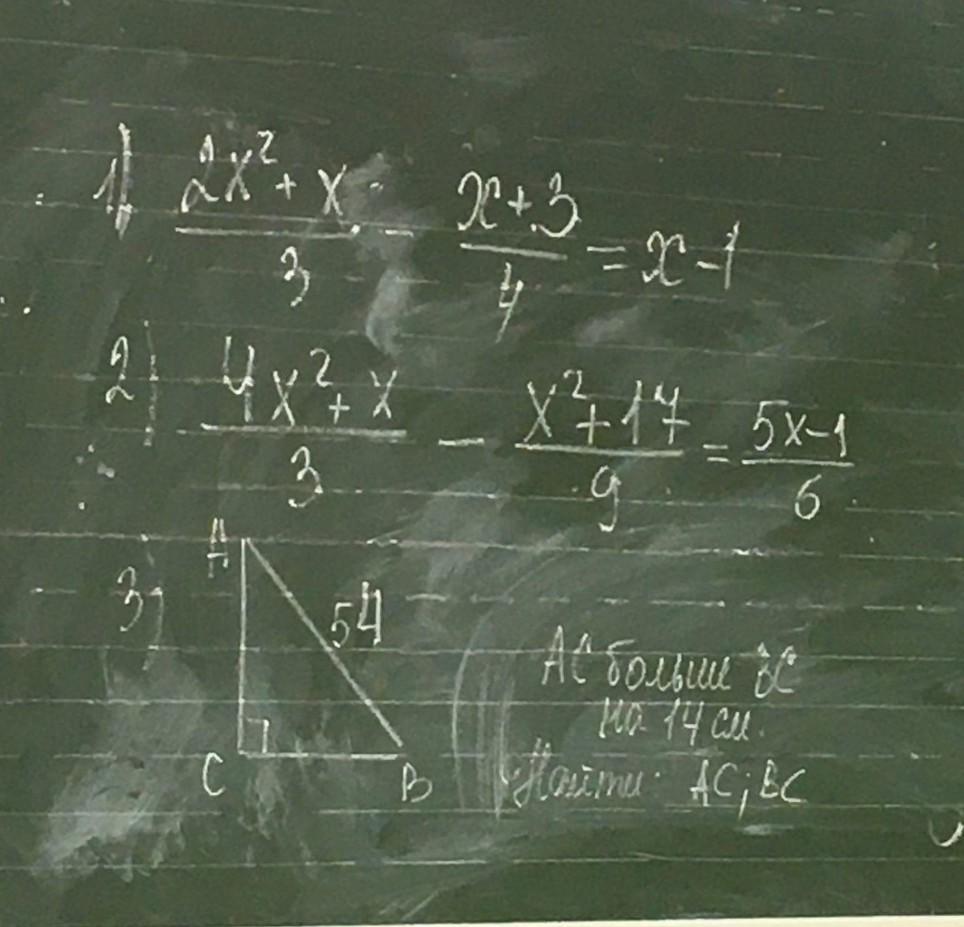 1) (2x² + x)/3 - (x+3)/4 = x-1
2) (4x² + x)/3 - (x² + 17)/9 = (5x-1)/6
3) A
54
C B
AC больше BC
на 14 см.
Найти: AC; BC